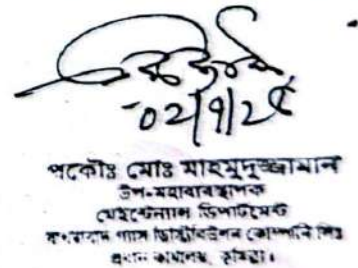 ০২/৭/২৫
প্রকৌঃ মোঃ মাহমুদুজ্জামান
উপ-মহাব্যবস্থাপক
মেইন্টেন্যান্স ডিপার্টমেন্ট
বাখরাবাদ গ্যাস ডিস্ট্রিবিউশন কোম্পানি লিঃ
প্রধান কার্যালয়, কুমিল্লা।